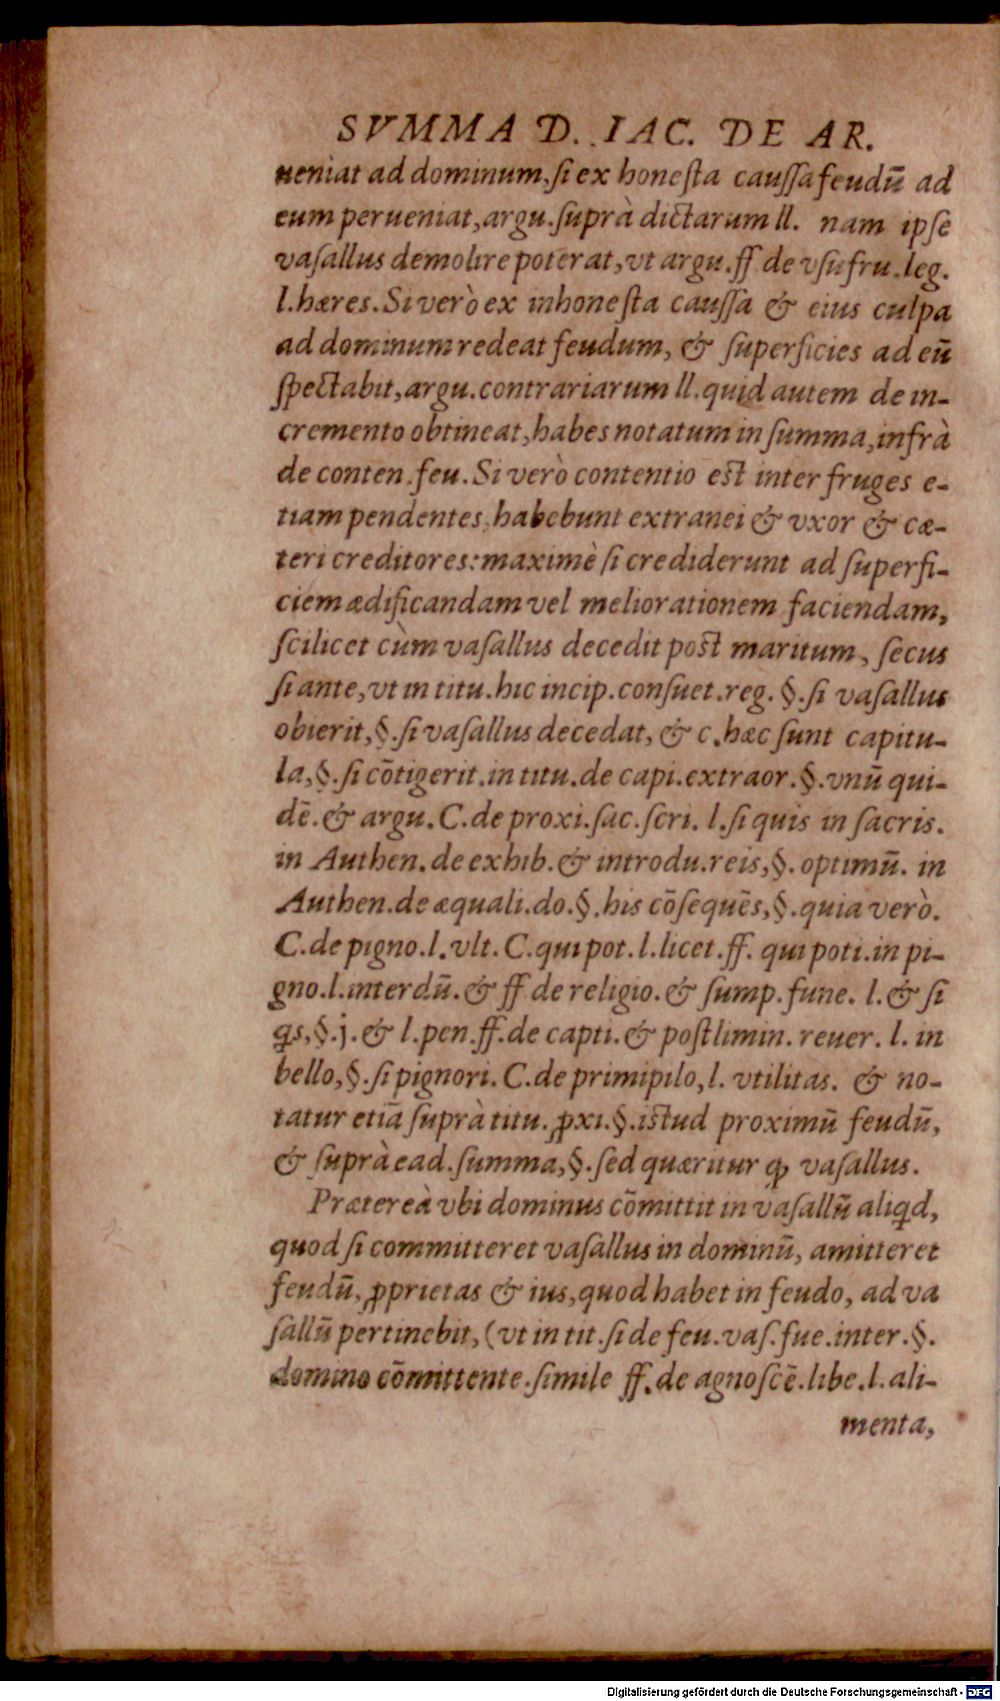 SVMMA D. IAC. DE AR.
ueniat ad dominum, si ex honesta caussa feudū ad
eum perueniat, argu. suprà dictarum ll. nam ipse
vasallus demolire poterat, vt argu. ff de vsufru. leg.
l. hæres. Si verò ex inhonesta caussa & eius culpa
ad dominum redeat feudum, & superficies ad eū
spectabit, argu. contrariarum ll. quid autem de in-
cremento obtineat, habes notatum in summa, infrà
de conten. feu. Si verò contentio est inter fruges e-
tiam pendentes, habebunt extranei & vxor & cæ-
teri creditores: maximè si crediderunt ad superfi-
ciem ædificandam vel meliorationem faciendam,
scilicet cùm vasallus decedit post maritum, secus
si ante, vt in titu. hic incip. consuet. reg. §. si vasallus
obierit, §. si vasallus decedat, & c. hæc sunt capitu-
la, §. si cōtigerit. in titu. de capi. extraor. §. vnū qui-
dē. & argu. C. de proxi. sac. scri. l. si quis in sacris.
in Authen. de exhib. & introdu. reis, §. optimū. in
Authen. de æquali. do. §. his cōsequēs, §. quia verò.
C. de pigno. l. vlt. C. qui pot. l. licet. ff. qui poti. in pi-
gno. l. interdū. & ff de religio. & sump. fune. l. & si
qs, §. j. & l. pen. ff. de capti. & postlimin. reuer. l. in
bello, §. si pignori. C. de primipilo, l. vtilitas. & no-
tatur etiā suprà titu. ꝓxi. §. istud proximū feudū,
& suprà ead. summa, §. sed quæritur qp vasallus.
Prætereà vbi dominus cōmittit in vasallū aliqd,
quod si committeret vasallus in dominū, amitteret
feudū, ꝓprietas & ius, quod habet in feudo, ad va
sallū pertinebit, (vt in tit. si de feu. vas. fue. inter. §.
domino cōmittente. simile ff. de agnoscē. libe. l. ali-
menta,
Digitalisierung gefördert durch die Deutsche Forschungsgemeinschaft - DFG